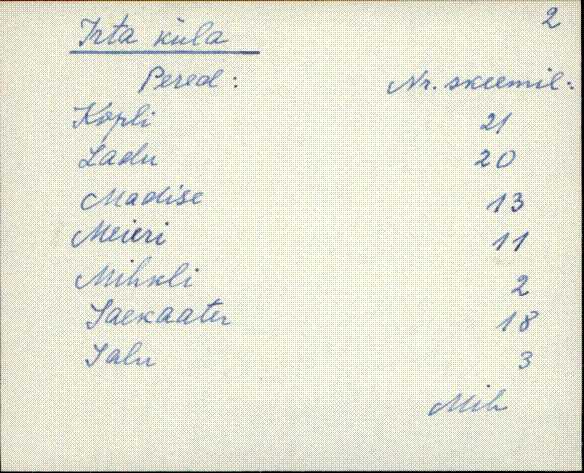 2
Irta küla
Pered: Nr. skeemil:
Kopli 21
Ladu 20
Madise 13
Meieri 11
Mihkli 2
Saekaater 18
Salu 3
Mih